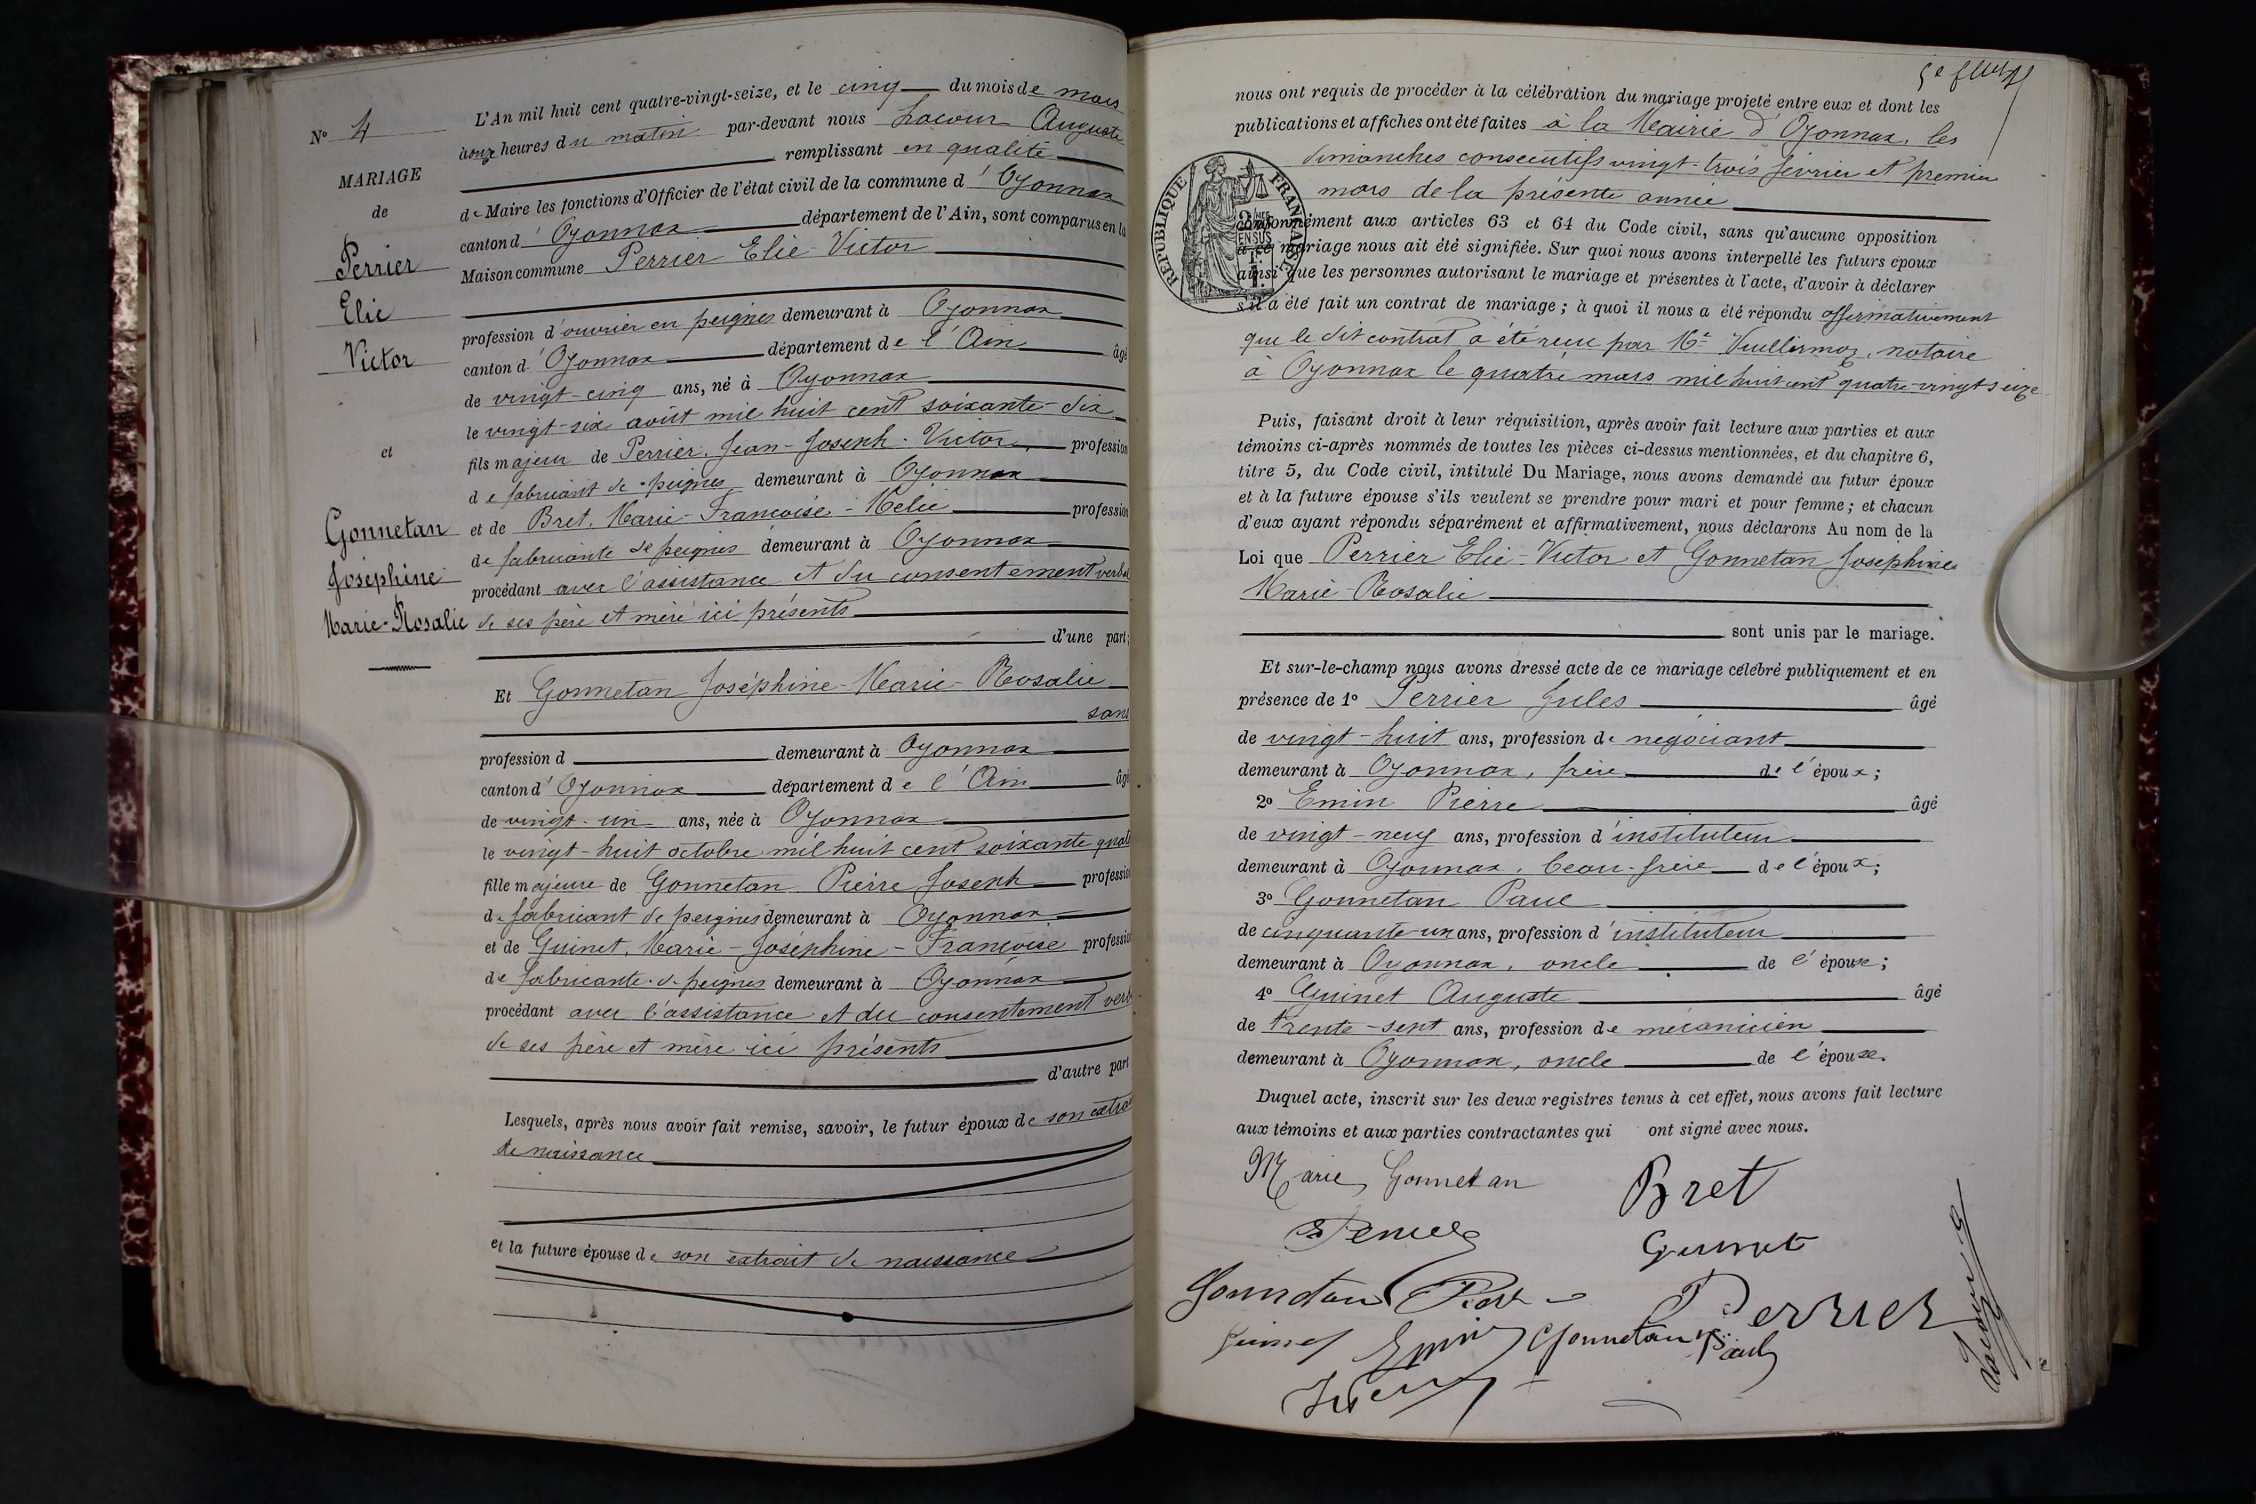 N° 4
MARIAGE
de
Perrier
Elie
Victor
et
Gonnetan
Joséphine
Marie-Rosalie
L'An mil huit cent quatre-vingt-seize, et le cinq du mois de mars
à onze heures du matin par-devant nous Lacour Auguste
remplissant en qualité
de Maire les fonctions d'Officier de l'état civil de la commune d'Oyonnax
canton d'Oyonnax département de l'Ain, sont comparus en la
Maison commune Perrier Elie-Victor
profession d'ouvrier en peignes demeurant à Oyonnax
canton d'Oyonnax département de l'Ain âgé
de vingt-cinq ans, né à Oyonnax
le vingt-six août mil huit cent soixante-dix
fils majeur de Perrier, Jean-Joseph-Victor, profession
de fabricant de peignes demeurant à Oyonnax
et de Bret, Marie-Françoise-Mélie profession
de fabricante de peignes demeurant à Oyonnax
procédant avec l'assistance et du consentement verbal
de ses père et mère ici présents
d'une part;
Et Gonnetan Joséphine-Marie-Rosalie
sans
profession d demeurant à Oyonnax
canton d'Oyonnax département de l'Ain âgé
de vingt-un ans, née à Oyonnax
le vingt-huit octobre mil huit cent soixante
fille majeure de Gonnetan Pierre Joseph profession
de fabricant de peignes demeurant à Oyonnax
et de Guinet, Marie-Joséphine-Françoise profession
de fabricante de peignes demeurant à Oyonnax
procédant avec l'assistance et du consentement
de ses père et mère ici présents
d'autre part
Lesquels, après nous avoir fait remise, savoir, le futur époux de son
de naissance
et la future épouse de son extrait de naissance
nous ont requis de procéder à la célébration du mariage projeté entre eux et dont les
publications et affiches ont été faites à la Mairie d'Oyonnax, les
dimanches consécutifs vingt-trois février et premier
mars de la présente année
RÉPUBLIQUE FRANÇAISE
conformément aux articles 63 et 64 du Code civil, sans qu'aucune opposition
à ce mariage nous ait été signifiée. Sur quoi nous avons interpellé les futurs époux
ainsi que les personnes autorisant le mariage et présentes à l'acte, d'avoir à déclarer
s'il a été fait un contrat de mariage; à quoi il nous a été répondu affirmativement
que le dit contrat a été reçu par Me Vuillermoz, notaire
à Oyonnax le quatre mars mil huit cent quatre-vingt-seize
Puis, faisant droit à leur réquisition, après avoir fait lecture aux parties et aux
témoins ci-après nommés de toutes les pièces ci-dessus mentionnées, et du chapitre 6,
titre 5, du Code civil, intitulé Du Mariage, nous avons demandé au futur époux
et à la future épouse s'ils veulent se prendre pour mari et pour femme; et chacun
d'eux ayant répondu séparément et affirmativement, nous déclarons Au nom de la
Loi que Perrier Elie-Victor et Gonnetan Joséphine
Marie-Rosalie
sont unis par le mariage.
Et sur-le-champ nous avons dressé acte de ce mariage célébré publiquement et en
présence de 1° Perrier Jules âgé
de vingt-huit ans, profession de négociant
demeurant à Oyonnax, frère de l'époux;
2° Emin Pierre âgé
de vingt-neuf ans, profession d'instituteur
demeurant à Oyonnax, beau-frère de l'époux;
3° Gonnetan Paul
de cinquante-un ans, profession d'instituteur
demeurant à Oyonnax, oncle de l'épouse;
4° Guinet Auguste âgé
de trente-sept ans, profession de mécanicien
demeurant à Oyonnax, oncle de l'épouse.
Duquel acte, inscrit sur les deux registres tenus à cet effet, nous avons fait lecture
aux témoins et aux parties contractantes qui ont signé avec nous.
Marie Gonnetan Bret
Guinet
Gonnetan Perrier
Guinet Emin Gonnetan Paul
Lacour